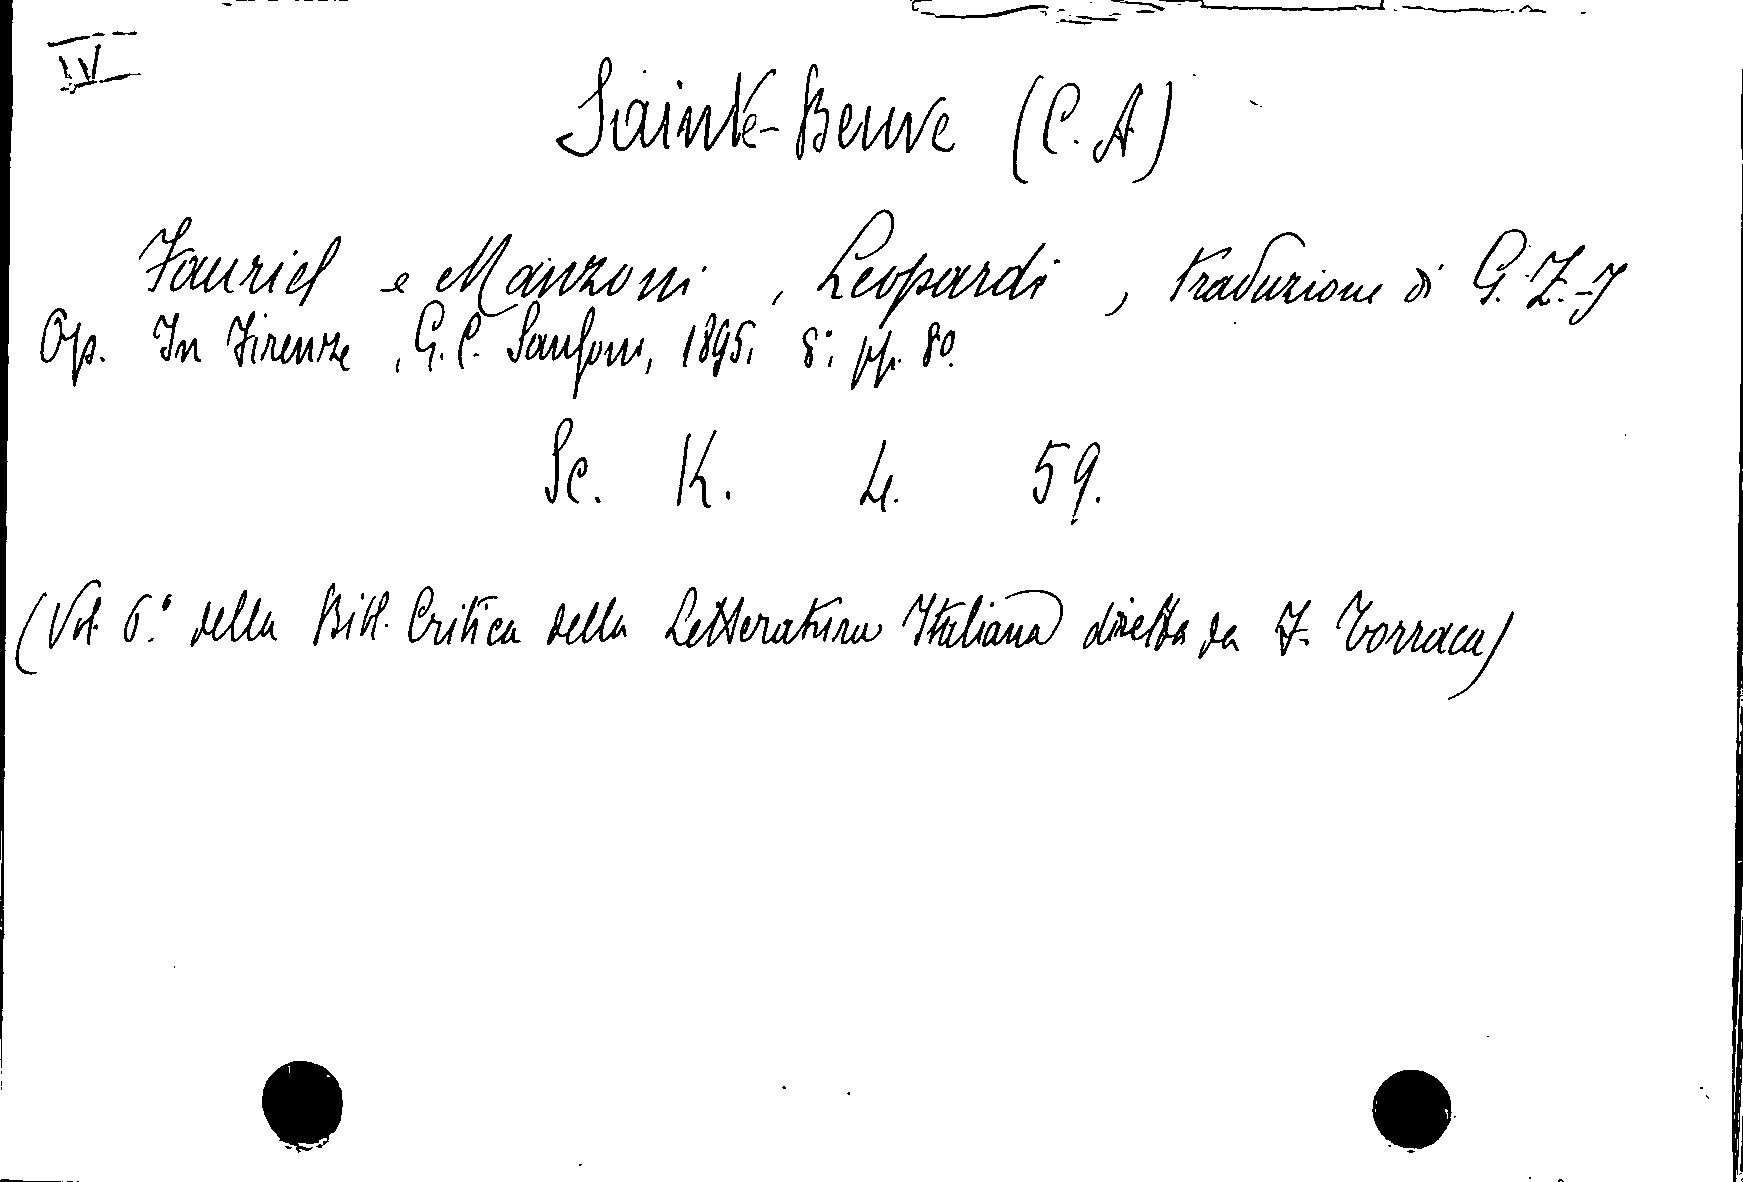 IV
Sainte-Beuve (C. A)
Fauriel e Manzoni, Leopardi, traduzione di G. Z.-J
Op. In Firenze, G. C. Sansoni, 1895. 8°. pp. 80.
Sc. K. 4. 59.
(Vol. 6.° della Bibl. Critica della Letteratura Italiana diretta da F. Torraca)